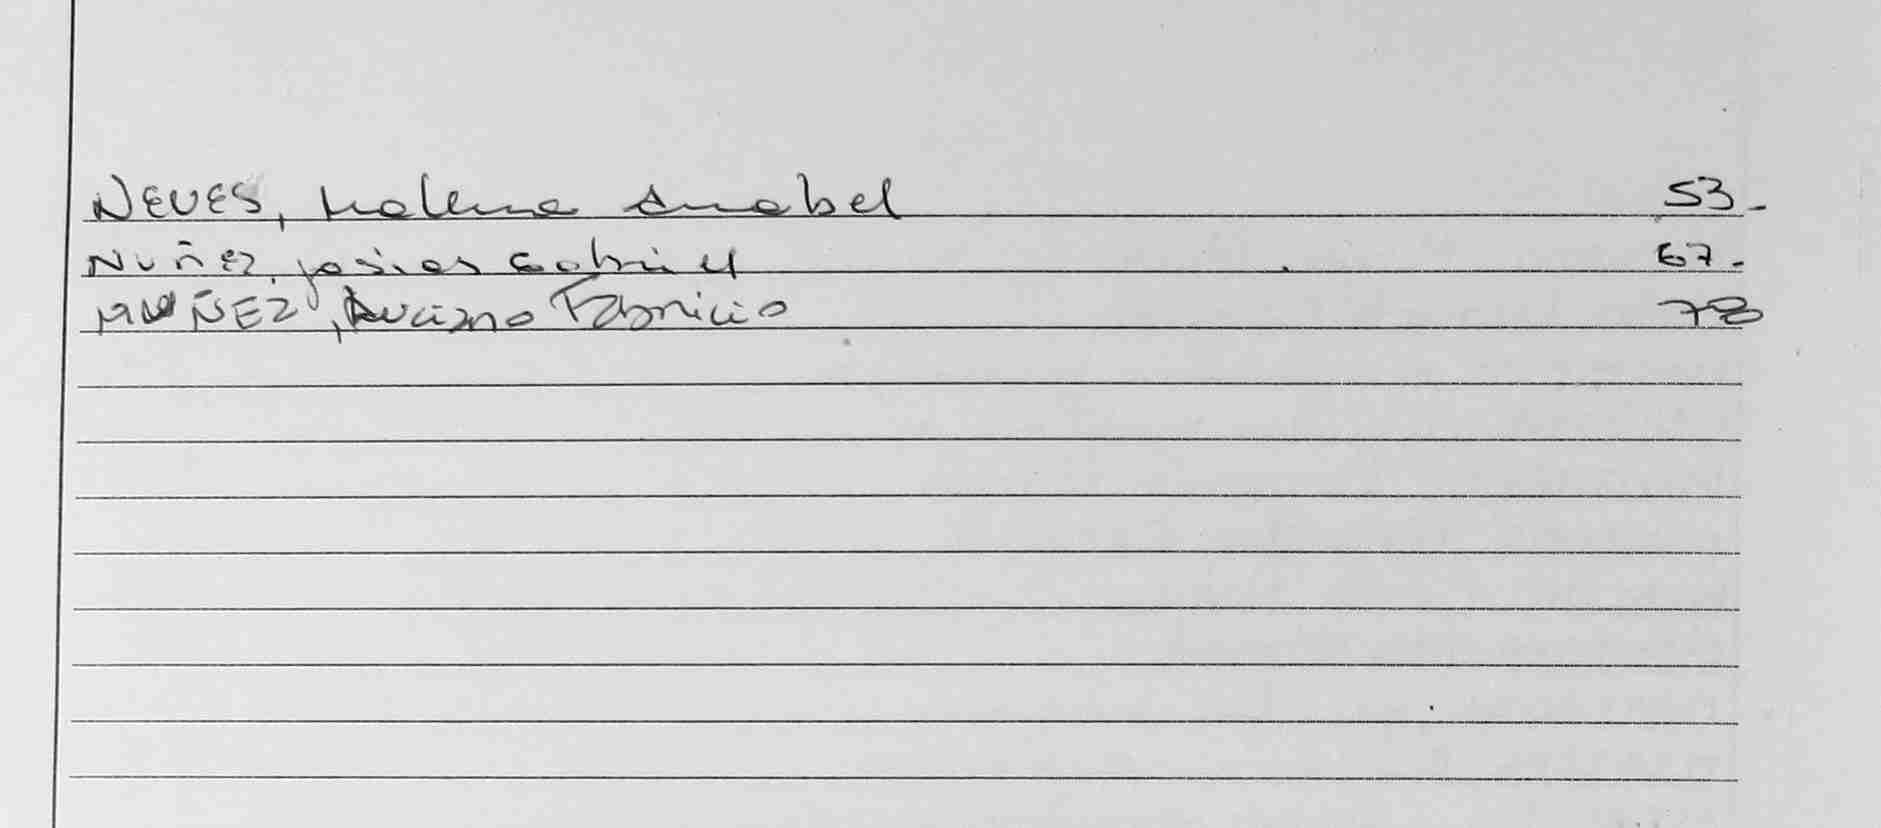 NEVES, Malena Anabel 53.-
NUÑEZ, Josias Gabriel 67.-
NUÑEZ, Luciano Fabricio 78